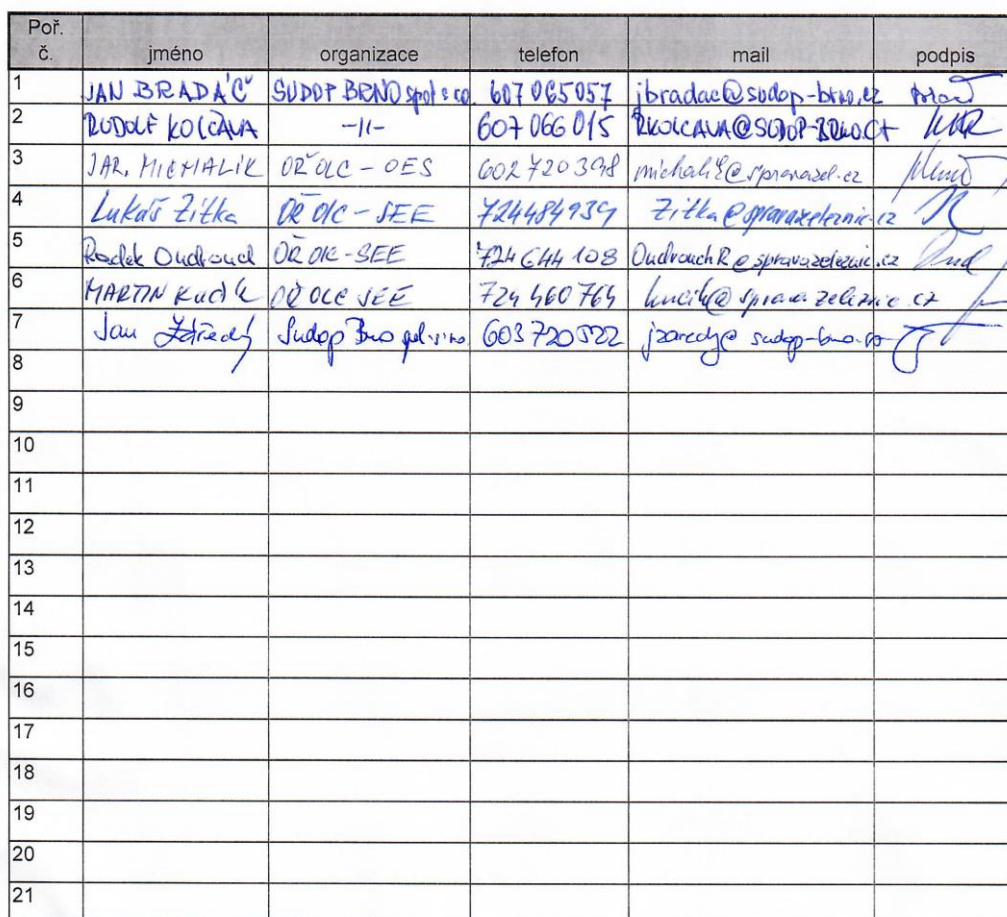 Poř. č. jméno organizace telefon mail podpis
1 JAN BRADÁČ SUDOP BRNO spol. s r.o. 607 065 057 jbradac@sudop-brno.cz
2 RUDOLF KOLČAVA -11- 607 066 015 RKOLCAVA@SUDOP-BRNO.CZ
3 JAR. MICHALÍK OŘ OLC - OES 602 720 398 michalik@spravazel.cz
4 Lukáš Zitka OŘ OLC - SEE 724484939 Zitka@spravazeleznic.cz
5 Radek Oudrouch OŘ OLC - SEE 724 644 108 OudrouchR@spravazeleznic.cz
6 MARTIN Kučík OŘ OLC SEE 724 460 764 kucik@sprava zeleznic.cz
7 Jan Sudop Brno spol. s r.o. 603 720 522
8
9
10
11
12
13
14
15
16
17
18
19
20
21